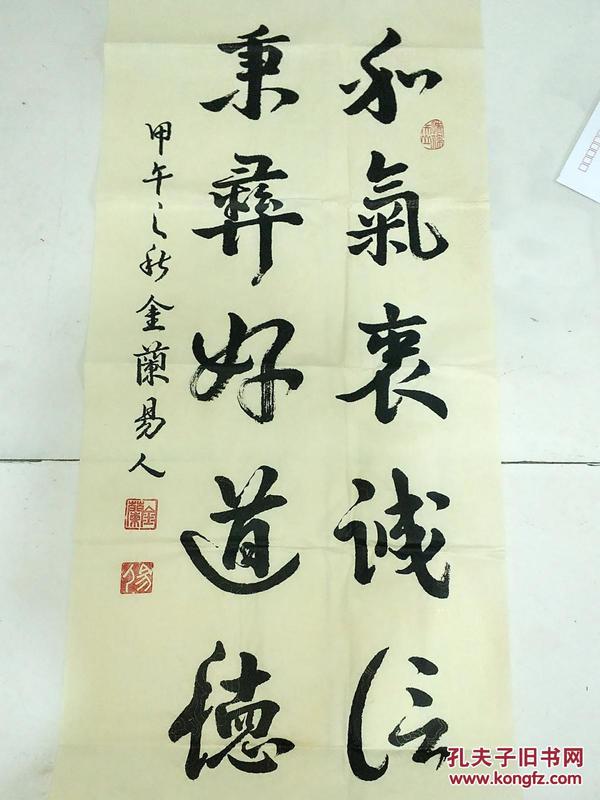 和氣衷诚信
秉彝好道德
甲午之秋金蘭易人
金蘭
孔夫子旧书网
www.kongfz.com